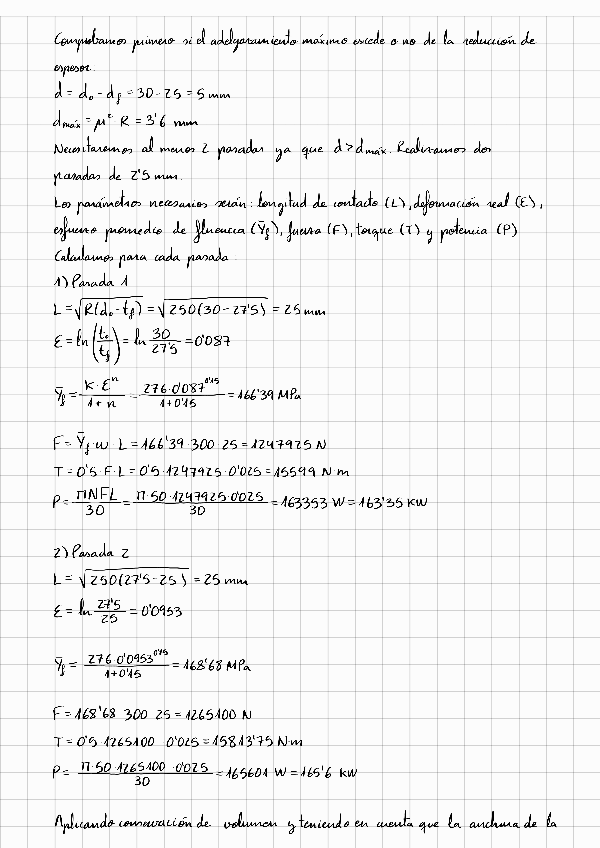 Comprobamos primero si el adelgazamiento máximo excede o no de la reducción de
espesor.
d = d₀ - d_f = 30 - 25 = 5 mm
d_máx = μ² R = 3'6 mm
Necesitaremos al menos 2 pasadas ya que d > d_máx. Realizamos dos
pasadas de 2'5 mm.
Los parámetros necesarios serán: longitud de contacto (L), deformación real (ε),
esfuerzo promedio de fluencia (Ȳ_f), fuerza (F), torque (T) y potencia (P)
Calculamos para cada pasada
1) Pasada 1
L = √(R(d₀ - t_f)) = √(250(30 - 27'5)) = 25 mm
ε = ln(t₀/t_f) = ln 30/27'5 = 0'087
Ȳ_f = K · εⁿ / (1 + n) = 276 · 0'087^0'15 / (1 + 0'15) = 166'39 MPa
F = Ȳ_f · w · L = 166'39 · 300 · 25 = 1247925 N
T = 0'5 · F · L = 0'5 · 1247925 · 0'025 = 15599 N·m
P = ΠNFL/30 = Π · 50 · 1247925 · 0'025 / 30 = 163353 W = 163'35 KW
2) Pasada 2
L = √(250(27'5 - 25)) = 25 mm
ε = ln 27'5/25 = 0'0953
Ȳ_f = 276 · 0'0953^0'15 / (1 + 0'15) = 168'68 MPa
F = 168'68 · 300 · 25 = 1265100 N
T = 0'5 · 1265100 · 0'025 = 15813'75 N·m
P = Π · 50 · 1265100 · 0'025 / 30 = 165601 W = 165'6 KW
Aplicando conservación de volumen y teniendo en cuenta que la anchura de la